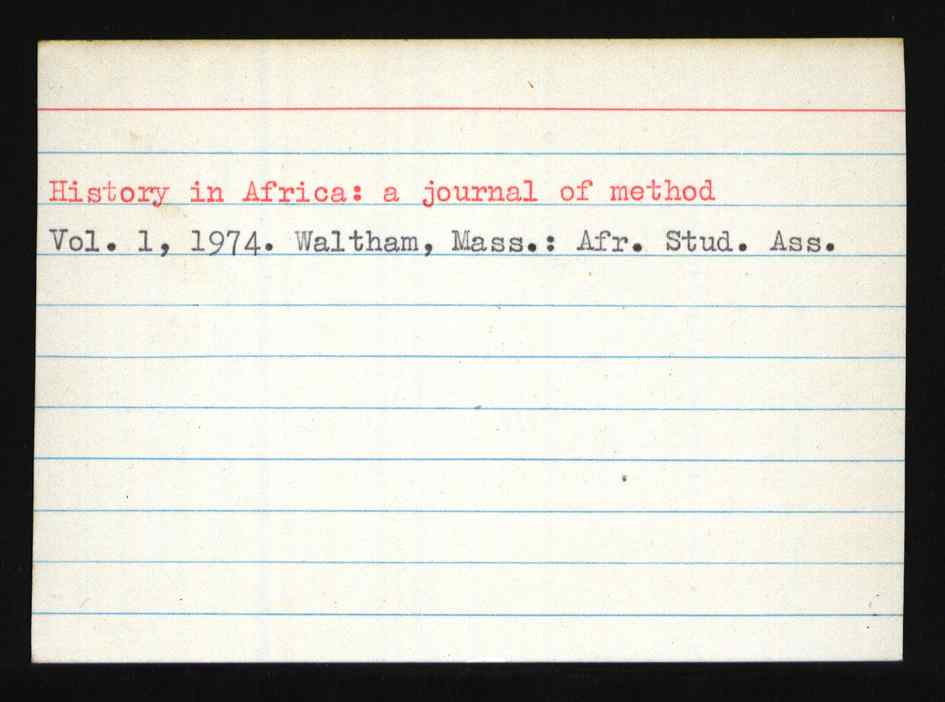 History in Africa: a journal of method
Vol. 1, 1974. Waltham, Mass.: Afr. Stud. Ass.